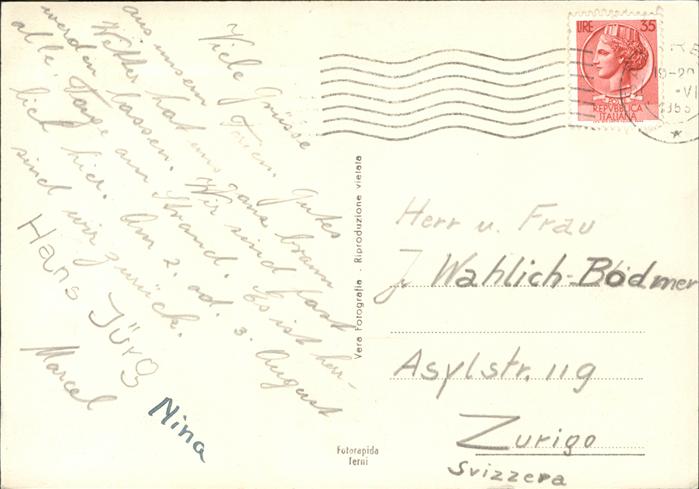 Viele Grüsse
aus unsern Ferien. Gutes
Wetter hat uns ganz braun
werden lassen. Wir sind fast
alle Tage am Strand. Es ist herr-
lich hier. Am 2. od. 3. August
sind wir zurück.
Hans Jürg
Marcel
Nina
Vera Fotografia - Riproduzione vietata
Fotorapida
Terni
LIRE 35
REPVBBLICA
ITALIANA
19-20
-VI
Herr u. Frau
J. Wahlich-Bodmer
Asylstr. 119
Zurigo
Svizzera